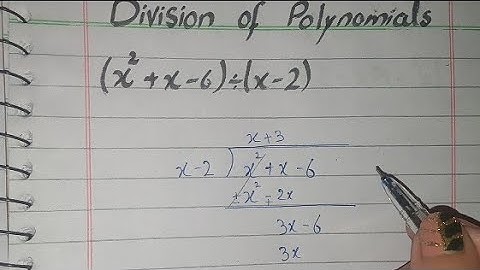 Division of Polynomials
(x² + x - 6) ÷ (x - 2)
x + 3
x - 2 ) x² + x - 6
± x² ∓ 2x
3x - 6
3x